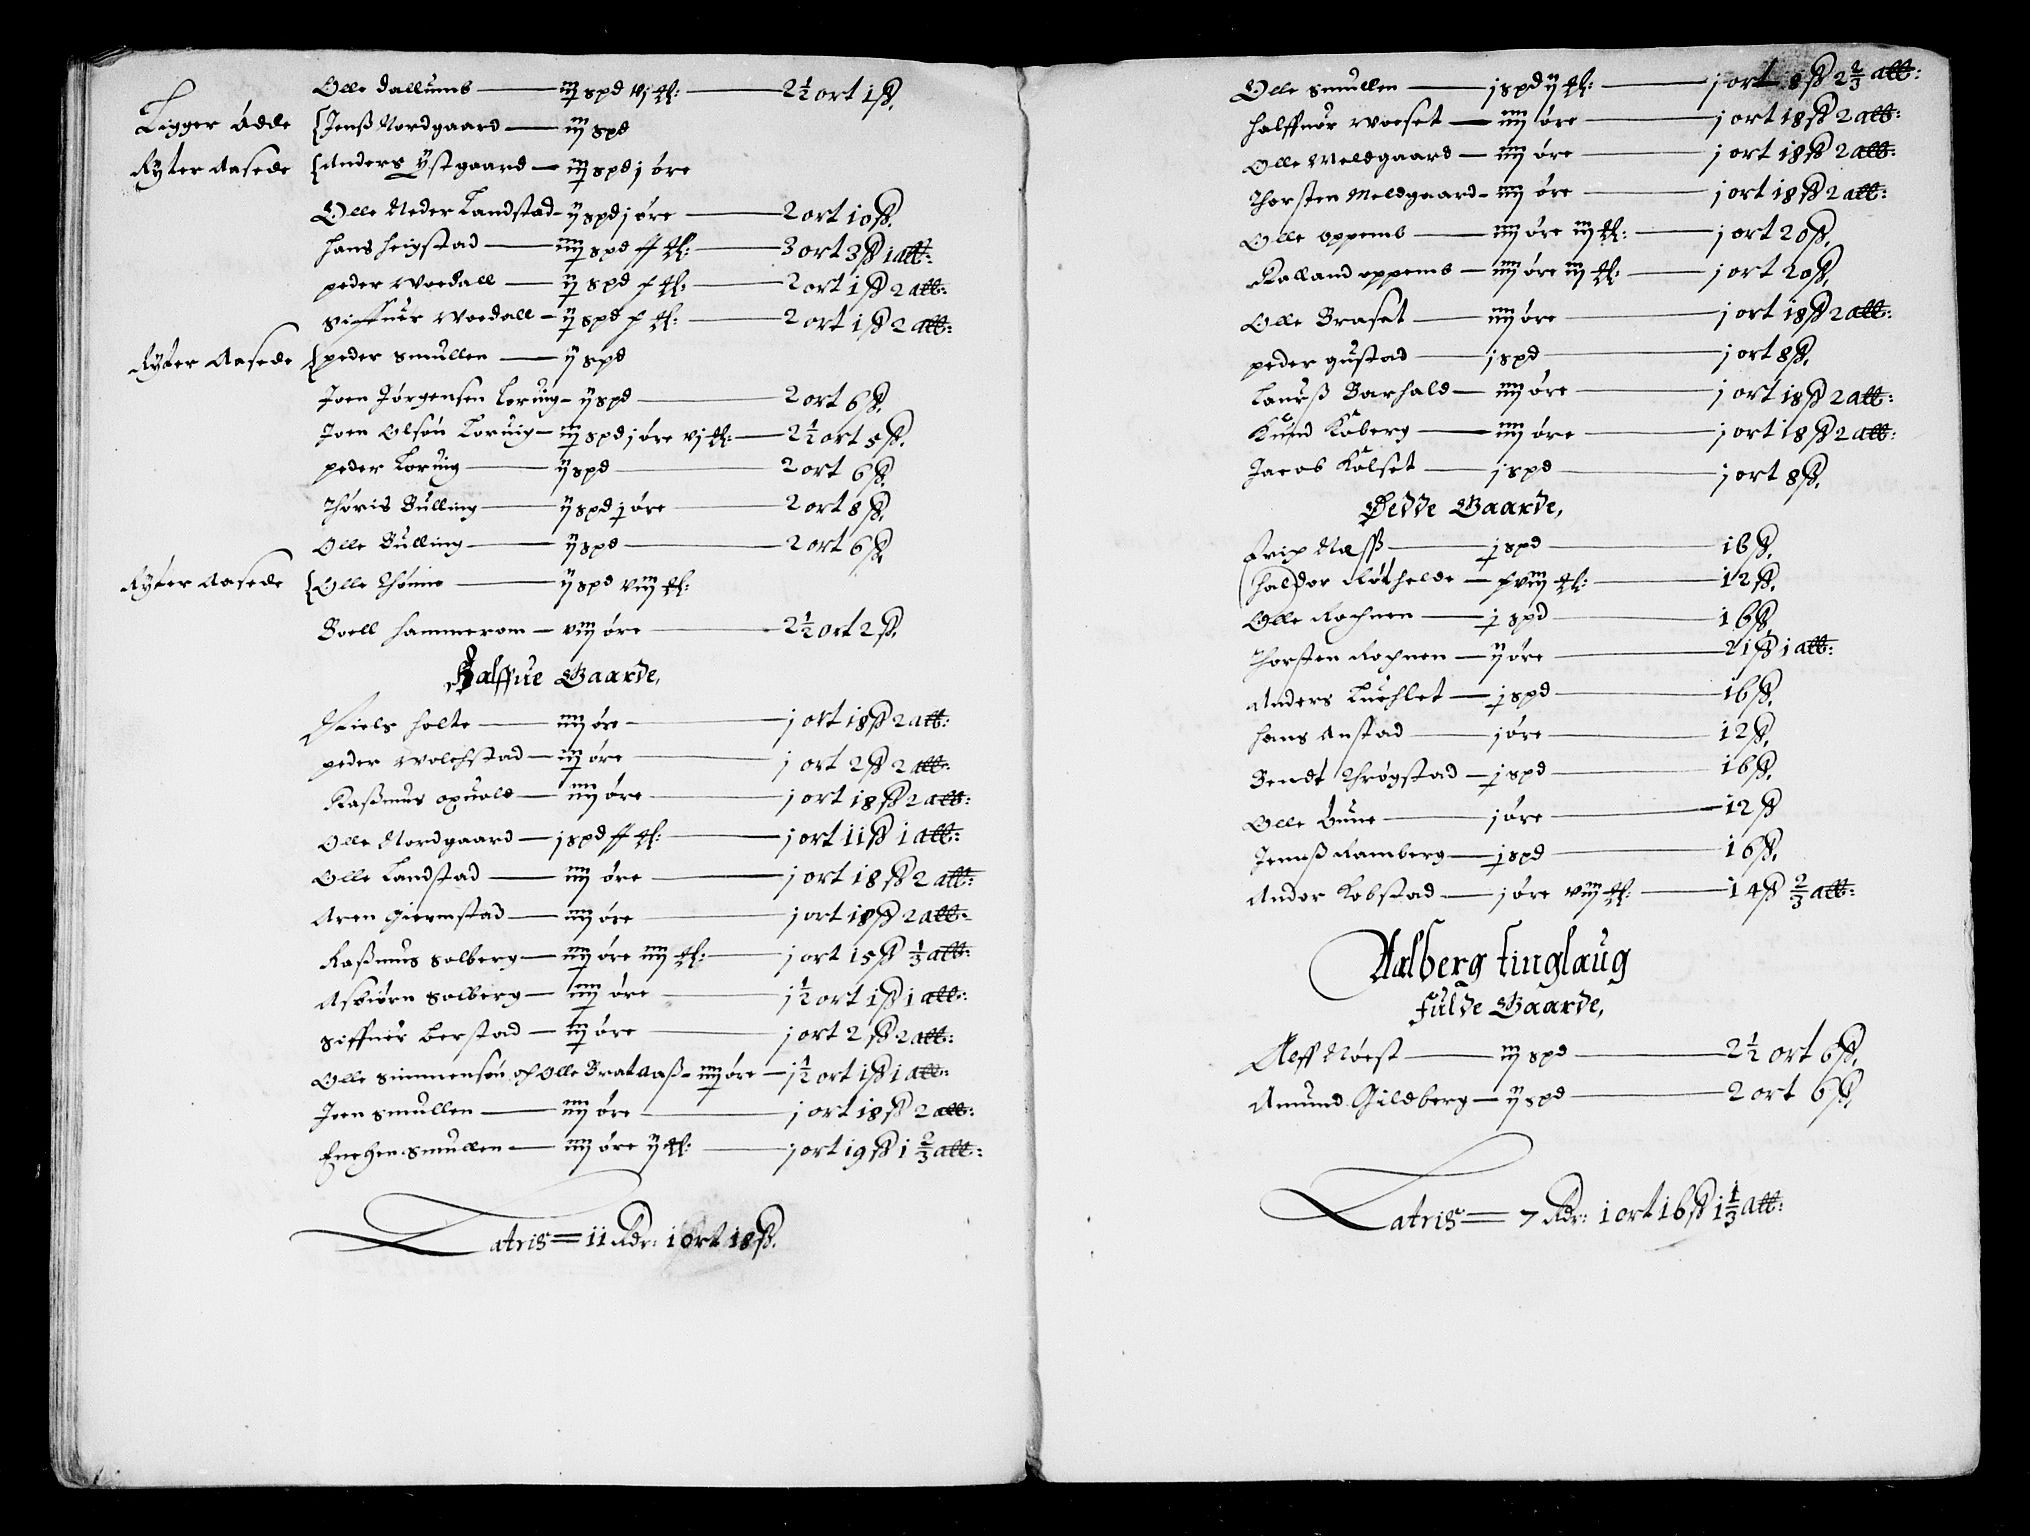 Olle Dallumb — iij spd vj ℔: — 2½ ort 1ß.
Ligger Ødde {Jenß Nordgaard — iiij spd
Ryter Aasede {Anders Ystgaard — iij spd j øre
Olle Nederlandstad — ij spd j øre — 2 ort 10ß.
Hans Heigstad — iij spd — 3 ort 3ß 1 alb:
peder Woedall — ij spd — 2 ort 1ß 2 alb:
Siffuer Woedall — ij spd — 2 ort 1ß 2 alb:
Ryter Aasede {peder Smullen — ij spd
Joen Jørgensen Loruig — ij spd — 2 ort 6ß.
Joen Olsøn Loruig — ij spd j øre vj ℔: — 2½ ort 5ß.
peder Loruig — ij spd — 2 ort 6ß.
Thøris Bulling — ij spd j øre — 2 ort 8ß.
Olle Bulling — ij spd — 2 ort 6ß.
Ryter Aasede {Olle Thønne — ij spd viij ℔:
Boell Hammerom — viij øre — 2½ ort 2ß.
Halffue Gaarde,
Niels Holte — iiij øre — j ort 18ß 2 alb:
peder Wolchstad — iij øre — j ort 2ß 2 alb:
Raßmus Opuold — iiij øre — j ort 18ß 2 alb:
Olle Nordgaard — j spd — j ort 11ß 1 alb:
Olle Landstad — iiij øre — j ort 18ß 2 alb:
Aren Giermstad — iiij øre — j ort 18ß 2 alb:
Raßmus Solberg — iiij øre iiij ℔: — j ort 15ß ⅓ alb:
Asbiørn Solberg — iiij øre — j½ ort 1ß 1 alb:
Siffuer Berstad — iij øre — j ort 2ß 2 alb:
Olle Simmensøn och Olle Brataaß — iiij øre — j½ ort 1ß 1 alb:
Joen Smullen — iiij øre — j ort 18ß 2 alb:
Enchen Smullen — iiij øre ij ℔: — j ort 19ß 1⅔ alb:
Latris = 11 Rdr: 1 ort 18ß.
Olle Smullen — j spd ij ℔: — j ort 8ß 2⅔ alb:
Halffuor Woeset — iiij øre — j ort 18ß 2 alb:
Olle Meldgaard — iiij øre — j ort 18ß 2 alb:
Thorsten Meldgaard — iiij øre — j ort 18ß 2 alb:
Olle Oppemb — iiij øre iij ℔: — j ort 20ß.
Kalland Oppemb — iiij øre iij ℔: — j ort 20ß.
Olle Braset — iiij øre — j ort 18ß 2 alb:
peder Gustad — j spd — j ort 8ß.
Lauruß Barhald — iiij øre — j ort 18ß 2 alb:
Knud Koberg — iiij øre — j ort 18ß 2 alb:
Jacob Kolset — j spd — j ort 8ß.
Øedde Gaarde,
Erich Næß — j spd — 16ß.
Haldor Røthelde — viij ℔: — 12ß.
Olle Rochnen — j spd — 16ß.
Thorsten Rochnen — ij øre — 21ß 1 alb:
Anders Luchlet — j spd — 16ß.
Hans Anstad — j øre — 12ß.
Bendt Thrøgstad — j spd — 16ß.
Olle Bune — j øre — 12ß
Jennß Ramberg — j spd — 16ß.
Ander Kobstad — j øre viij ℔: — 14ß ⅔ alb:
Aalberg tinglaug
fulde Gaarde,
Alff Nøest — iij spd — 2½ ort 6ß.
Amund Gildberg — ij spd — 2 ort 6ß.
Latris = 7 Rdr: 1 ort 16ß 1⅓ alb: